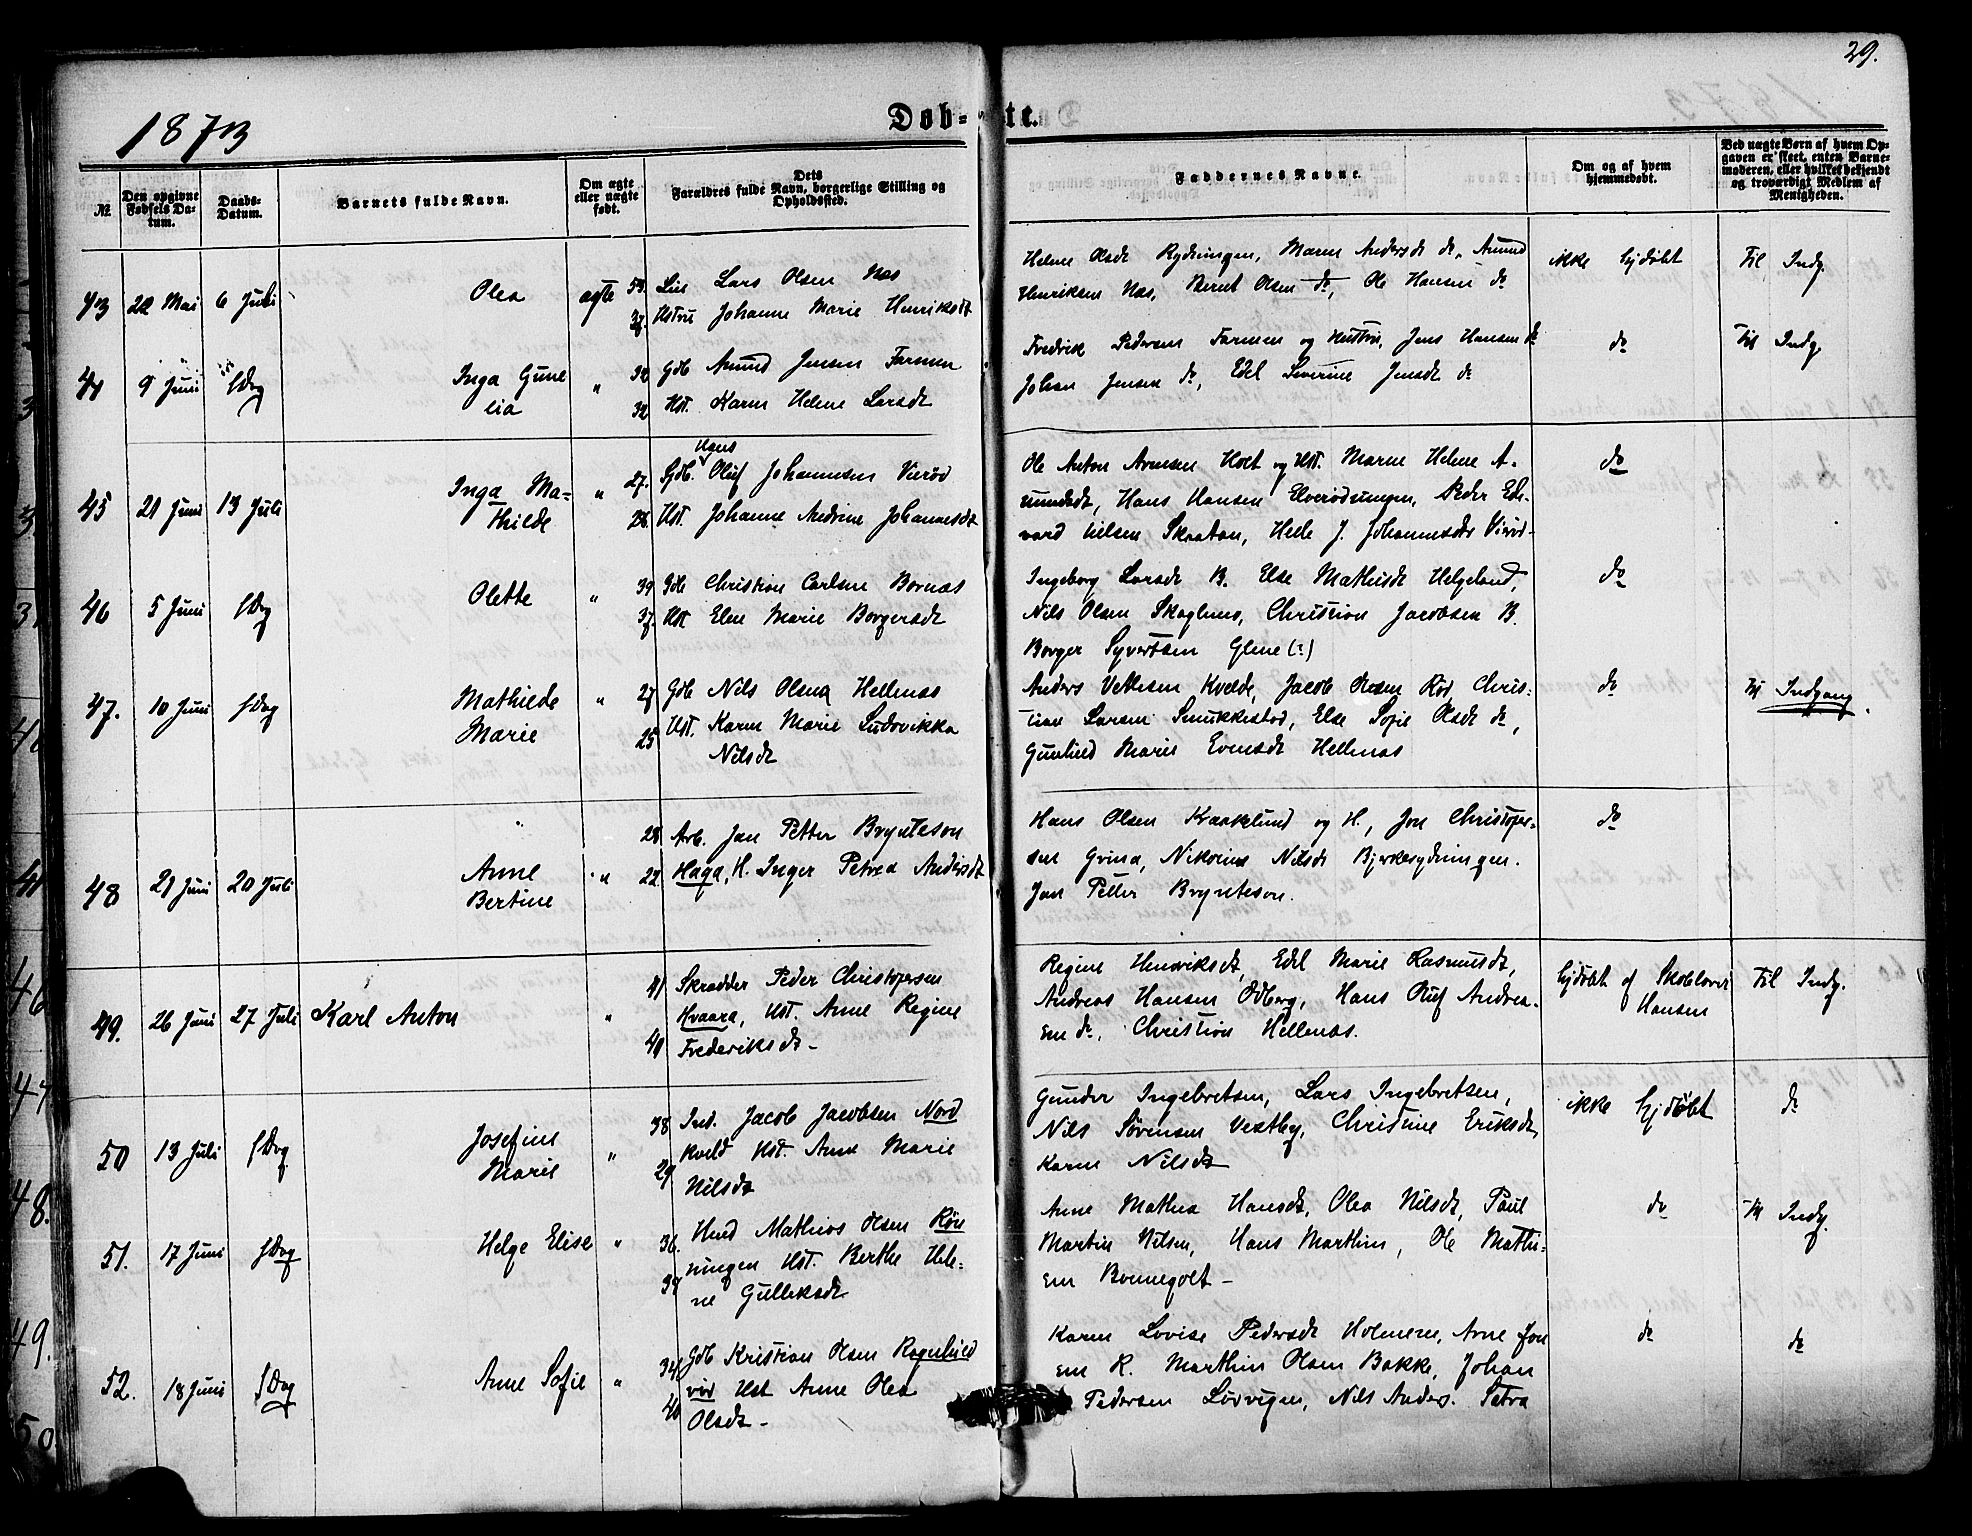 29.
1873
Døb-te.
№
Den opgivne Fødsels Da-tum.
Daabs-Datum.
Barnets fulde Navn.
Om ægte eller uægte født.
Dets Forældres fulde Navn, borgerlige Stilling og Opholdssted.
Faddernes Navne.
Om og af hvem hjemmedøbt.
Ved uægte Børn af hvem Op-gaven er skeet, enten Barne-moderen, eller hvilket bekjendt og troværdigt Medlem af Menigheden.
43 22 Mai 6 Juli Olea ægte 53. Lars Olsen Næs
37. Ustru Johanne Marie Henriksdt
Helene Olsdt Rydningen, Maren Andersdt do, Amund
Henriksen Næs, Bernt Olsen do, Ole Hansen do
ikke hjdøbt Til Indg.
44 9 Juni s Dag Inga Gune " 32 Gdb Amund Jensen Farmen
lia 32 Ust. Karen Helene Larsdt
Fredrik Pedersen Farmen og Hustru, Jens Hansen do
Johan Jensen do, Edel Severine Jensdt do
do Til Indg.
45 21 Juni 13 Juli Inga Ma- " 27. Gdb. Hans Oluf Johannesen Virød
thilde 26. Ust. Johanne Andrine Johannesdt
Ole Anton Arnesen Holt og Ust. Maren Helene A-
mundsdt, Hans Hansen Elverødsungen, Peder Ed-
vard Nilsen Skaatan, Helle J. Johannesdt Virød-
do
46 5 Juni s Dag Olette " 39 Gdb Christian Carlsen Bornæs
37. Ust Elen Marie Borgersdt
Ingeborg Larsdt B. Else Mathisdt Helgeland,
Nils Olsen Skaglunds, Christian Jacobsen B.
Borger Syvertsen Glene (?)
do
47. 10 Juni s Dag Mathilde " 27 Gdb Nils Olsen Hellenæs
Marie 25 Ust. Karen Marie Ludovikka
Nilsdt
Anders Vetlesen Kvelde, Jacob Olesen Rød, Chris-
tian Larsen Smukkestad, Else Sofie Olsdt do,
Gunhild Marie Evensdt Hellenæs
do Til Indgang.
48 21 Juni 20 Juli Anne " 28 Arb. Jan Petter Brynteson
Bertine 22. Haga, H. Inger Petrea Andersdt
Hans Olsen Kraaklund og H., Jon Christoper-
sen Grina, Nikoline Nilsdt Bjerkerydningen.
Jan Petter Brynteson.
do
49. 26 Juni 27 Juli Karl Anton " 41 Skrædder Peder Christopersen
Kvaara, Ust. Anne Regine
40 Frederiksdt -
Regine Henriksdt, Edel Marie Rasmusdt,
Andreas Hansen Odberg, Hans Oluf Andrea-
sen do, Christian Hellenæs.
hjdøbt af Skolelærer
Hansen
Til Indg.
50 13 Juli s Dag Josefine " 38 Ind. Jacob Jacobsen Nord
Marie 29 kveld Ust. Anne Marie
Nilsdt
Gunder Ingebretsen, Lars Ingebretsen,
Nils Sørensen Vestby, Christine Eriksdt,
Karen Nilsdt
ikke hjdøbt do
51. 17 Juni s Dag Helge Elise " 36. Husmd Mathias Olsen Røn
ningen Ust. Berthe Hele-
39 ne Gulleksdt
Anne Mathea Hansdt, Olea Nilsdt, Paul
Martin Nilsen, Hans Marthin, Ole Mathi-
sen Bonnegolt -
do Til Indg.
52. 18 Juni s Dag Anne Sofie " 34 Gdb Kristian Olsen Ragnhild
rød Ust Anne Olea
40 Olsdt -
Karen Lovise Pedersdt Holmene, Arne Jon
sen R. Marthin Olsen Bakke, Johan
Pedersen Løvvigen, Nils Anders. Sætra
do do